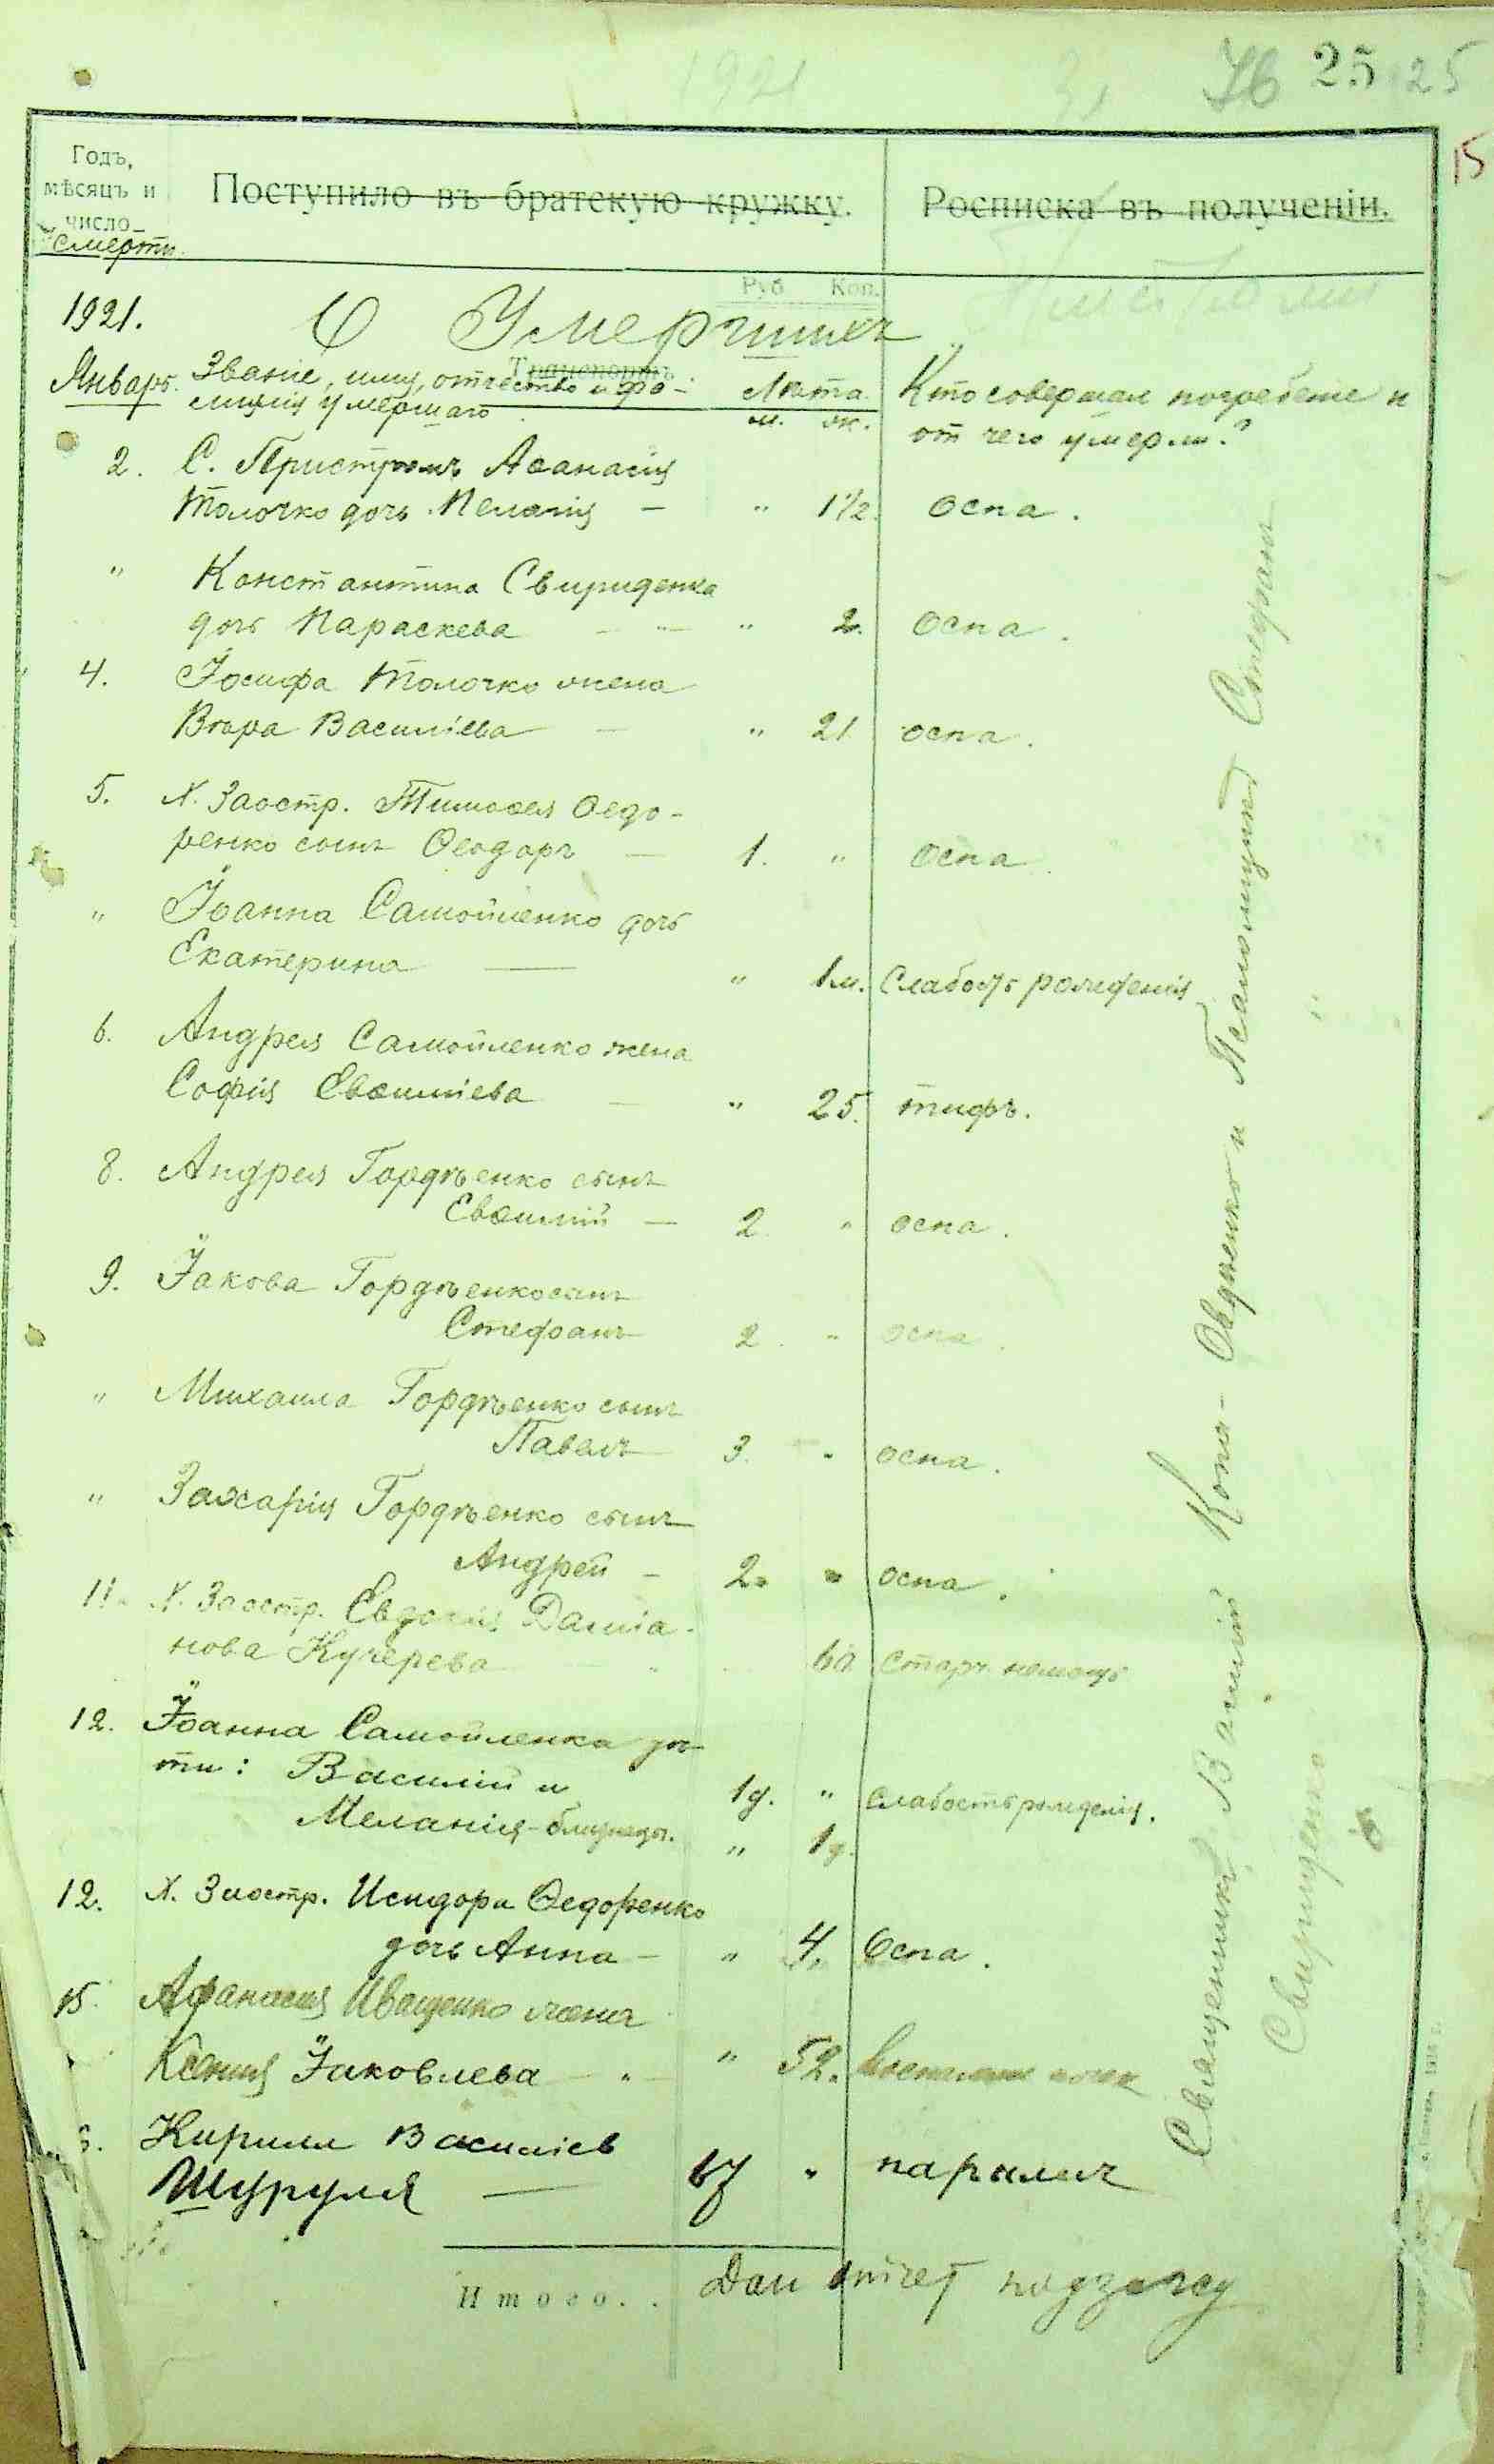 1921
25 25
15
Годъ,
мѣсяцъ и
число
смерти.
Поступило въ братскую кружку.
Росписка въ полученіи.
Руб. Коп.
1921. О Умершихъ
Транспортъ
Январь. Званіе, имя, отчество и фа-
милія умершаго
Лѣта
м. ж.
Кто совершал погребеніе и
от чего умерли?
2. С. Пристромъ Аѳанасія
Толочко дочь Пелагія — " 1 1/2. оспа.
" Константина Свириденка
дочь Параскева — " — " 2. оспа.
4. Іосифа Толочко жена
Вѣра Василіева — " 21 оспа.
5. Х. Заостр. Тимоѳея Ѳедо-
ренко сынъ Ѳеодоръ — 1. " оспа.
" Іоанна Самойленко дочь
Екатерина — " 1 м. Слабость рожденія
6. Андрея Самойленко жена
Софія Евѳиміева — " 25. тифъ.
8. Андрея Гордѣенко сынъ
Евѳимій — 2 " оспа.
9. Іакова Гордѣенко сынъ
Стефанъ 2. " оспа.
" Михаила Гордѣенко сынъ
Павелъ 3. " оспа.
" Захарія Гордѣенко сынъ
Андрей — 2. " оспа.
11. Х. Заостр. Евдокія Даміа-
нова Кучерева " 60 старч. немощь
12. Іоанна Самойленка дѣ-
ти: Василій и 1 д. " слабость рожденія.
Меланія - близнецы. " 1 д.
12. Х. Заостр. Исидора Ѳедоренко
дочь Анна — " 4. Оспа.
15. Афанасия Иващенко жена
Ксения Іаковлева — " 52.
Кирилл Василіев
Шуруля — 67 " паралич
Итого. .
Священникъ Василій Копа-Овдіенко и Псаломщикъ Стефанъ
Свириденко